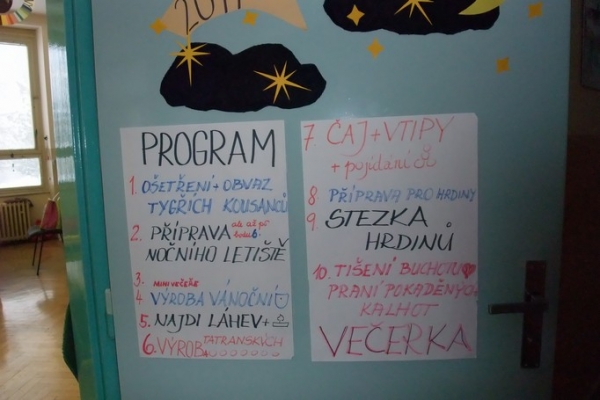 2011
PROGRAM
1. OŠETŘENÍ + OBVAZ
TYGŘÍCH KOUSANCŮ
2. PŘÍPRAVA
NOČNÍHO LETIŠTĚ
3.
4. VÝROBA VÁNOČNÍ
5. NAJDI LÁHEV +
6. VÝROBA TATRANSKÝCH
7 ČAJ + VTIPY
+ pojídání
8 PŘÍPRAVA PRO HRDINY
9 STEZKA
HRDINŮ
10. TIŠENÍ BUCHOTU
PRANÍ POKADĚNÝCH
KALHOT
VEČERKA